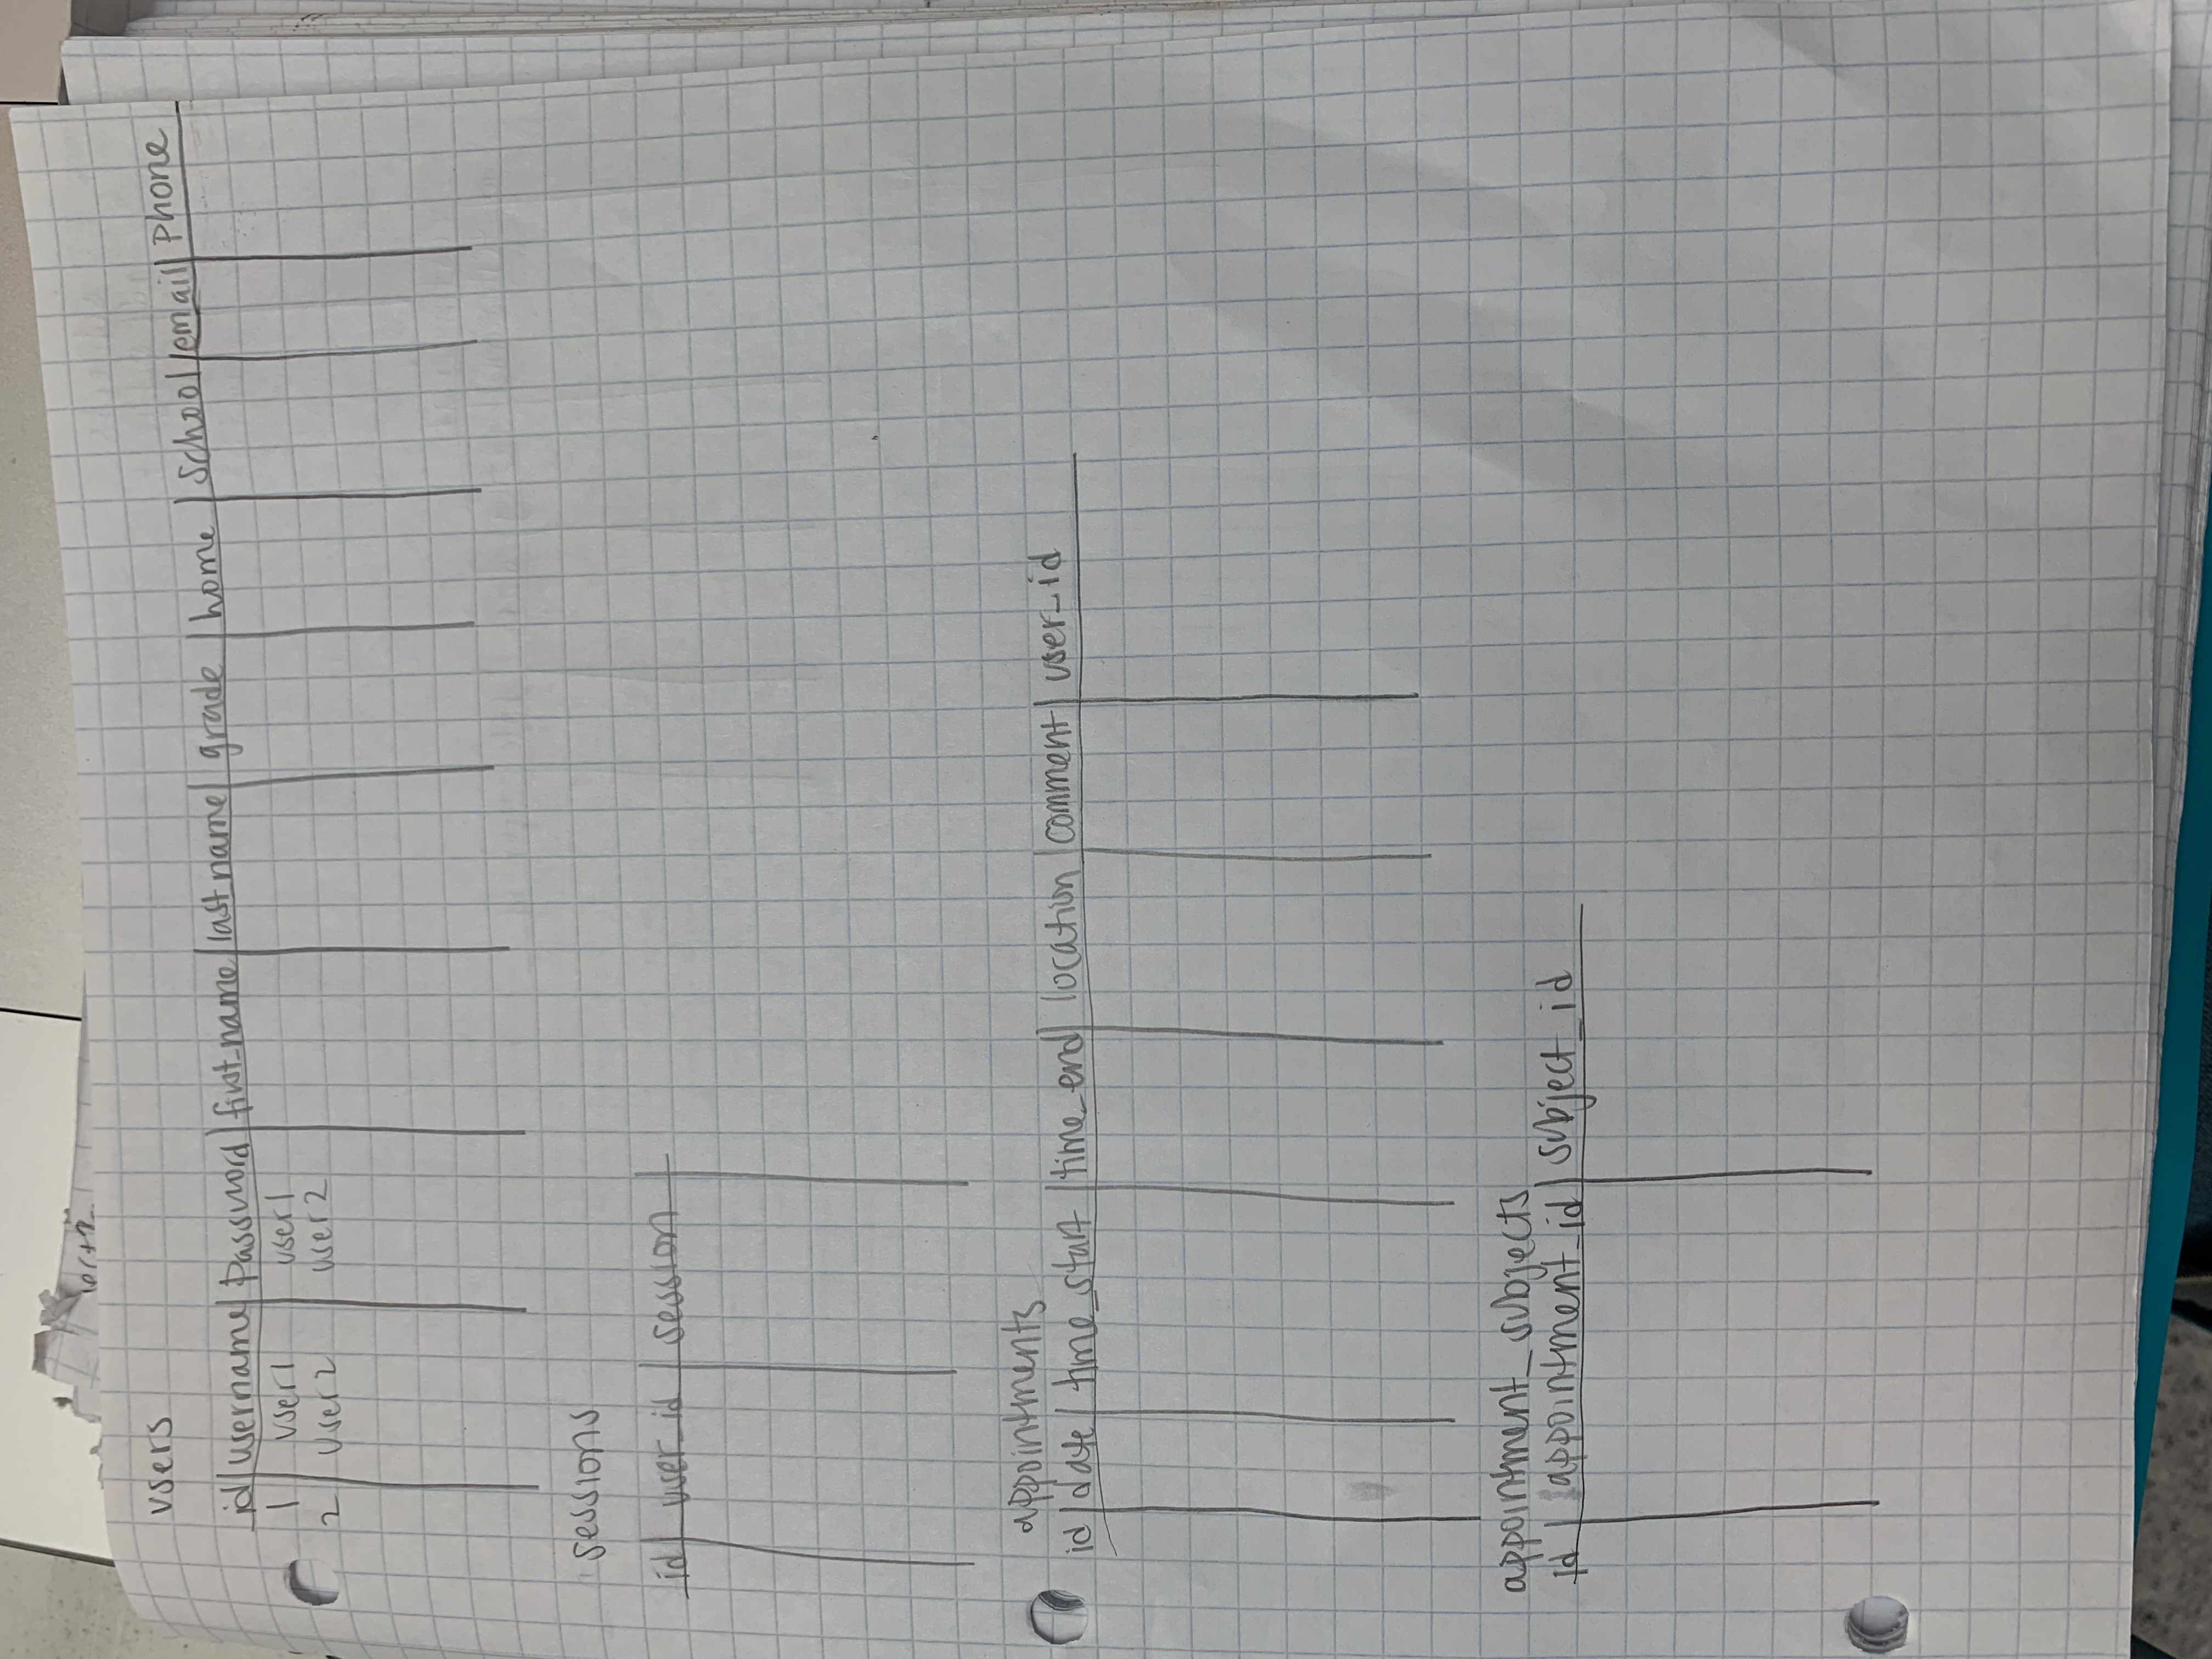 users
id username password first_name last name grade home school email phone
1 user1 user1
2 user2 user2
sessions
id user_id session
appointments
id date time_start time_end location comment user_id
appointment_subjects
id appointment_id subject_id